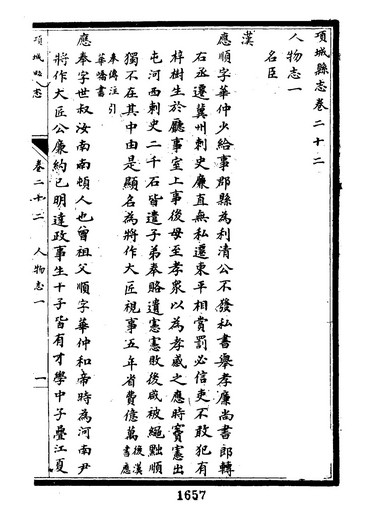 項城縣志卷二十二
人物志一
名臣
漢
應順字華仲少給事郡縣為利清公不發私書舉孝廉尚書郎轉
右丞遷冀州刺史廉直無私遷東平相賞罰必信吏不敢犯有
梓樹生於廳事室上事後母至孝眾以為孝感之應時竇憲出
屯河西刺史二千石皆遣子弟奉賂遺憲憲敗後咸被繩黜順
獨不在其中由是顯名為將作大匠視事五年省費億萬後漢書應
奉傳注引
華嶠書
應奉字世叔汝南南頓人也曾祖父順字華仲和帝時為河南尹
將作大匠公廉約己明達政事生十子皆有才學中子疊江夏
項城縣志
卷二十二
人物志一
一
1657